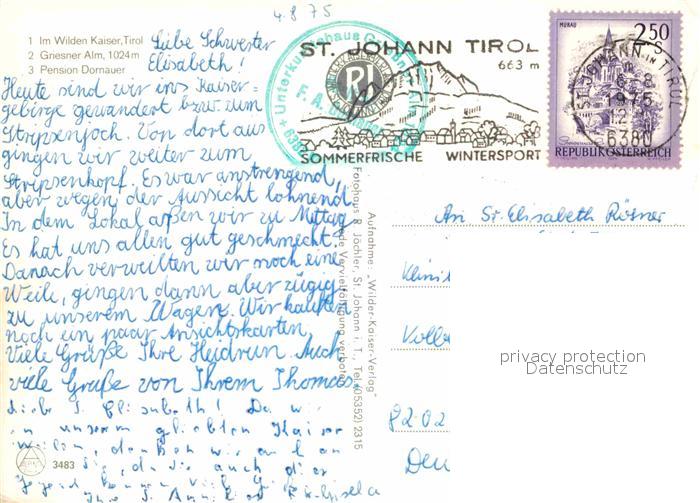 4.8.75
1 Im Wilden Kaiser, Tirol
2 Griesner Alm, 1024 m
3 Pension Dornauer
Liebe Schwester
Elisabeth!
Heute sind wir ins Kaiser-
gebirge gewandert bzw. zum
Stripsenjoch. Von dort aus
gingen wir weiter zum
Stripsenkopf. Es war anstrengend,
aber wegen der Aussicht lohnend.
In dem Lokal aßen wir zu Mittag.
Es hat uns allen gut geschmeckt.
Danach verweilten wir noch eine
Weile, gingen dann aber zügig
zu unserem Wagen. Wir kauften
noch ein paar Ansichtskarten,
Viele Grüße Ihre Heidrun. Auch
viele Grüße von Ihrem Thomas.
Liebe S. Elisabeth! Da wir
in unserem geliebten Kaiser
denken wir an
Sie, die auch
3483
Aufnahme: „Wilder-Kaiser-Verlag"
Fotohaus R. Jöchler, St. Johann i. T., Tel. (05352) 2315
Vervielfältigung verboten
Unterkunftshaus
ST. JOHANN TIROL
663 m
SOMMERFRISCHE WINTERSPORT
MURAU
2.50
S
REPUBLIK ÖSTERREICH
ST. JOHANN IN TIROL
1975
6380
An Sr. Elisabeth Rösner
8202
privacy protection
Datenschutz